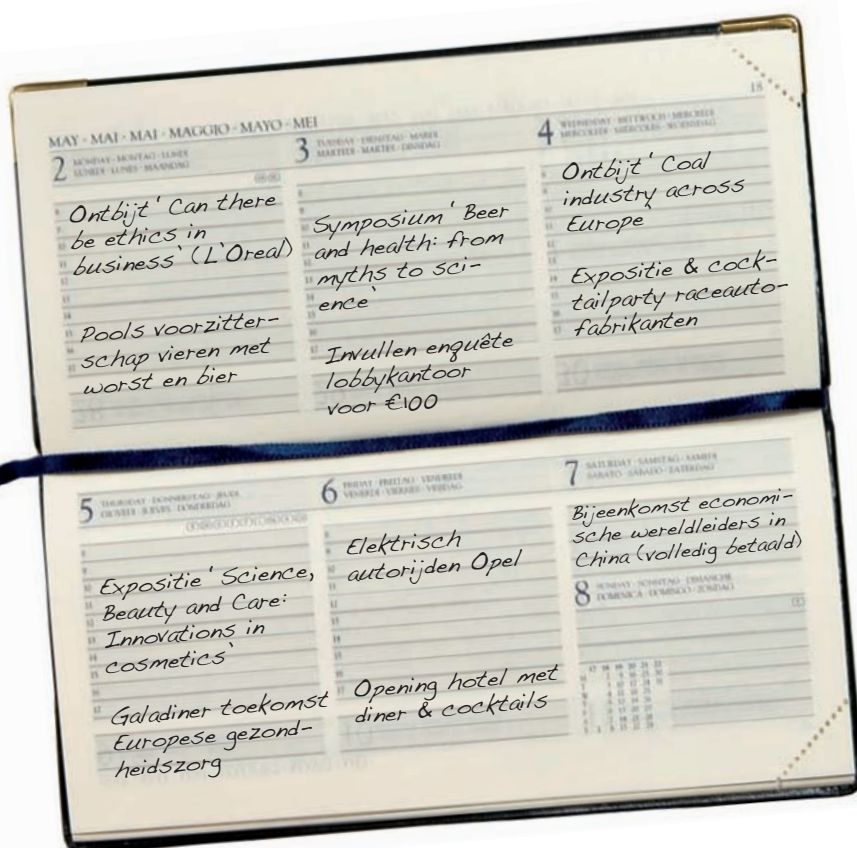 18
MAY - MAI - MAI - MAGGIO - MAYO - MEI
2
MONDAY - MONTAG - LUNDI
LUNEDI - LUNES - MAANDAG
Ontbijt ' Can there
be ethics in
business` (L`Oreal)
Pools voorzitter-
schap vieren met
worst en bier
3
TUESDAY - DIENSTAG - MARDI
MARTEDI - MARTES - DINSDAG
Symposium ' Beer
and health: from
myths to sci-
ence`
Invullen enquête
lobbykantoor
voor €100
4
WEDNESDAY - MITTWOCH - MERCREDI
MERCOLEDI - MIERCOLES - WOENSDAG
Ontbijt ' Coal
industry across
Europe`
Expositie & cock-
tailparty raceauto-
fabrikanten
5
THURSDAY - DONNERSTAG - JEUDI
GIOVEDI - JUEVES - DONDERDAG
Expositie ' Science,
Beauty and Care:
Innovations in
cosmetics`
Galadiner toekomst
Europese gezond-
heidszorg
6
FRIDAY - FREITAG - VENDREDI
VENERDI - VIERNES - VRIJDAG
Elektrisch
autorijden Opel
Opening hotel met
diner & cocktails
7
SATURDAY - SAMSTAG - SAMEDI
SABATO - SABADO - ZATERDAG
Bijeenkomst economi-
sche wereldleiders in
China (volledig betaald)
8
SUNDAY - SONNTAG - DIMANCHE
DOMENICA - DOMINGO - ZONDAG